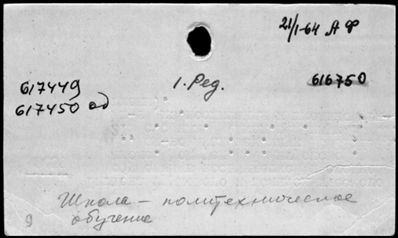 21/I-64 А Ф
617449
1. Ред.
616750
617450 ад
Школа — политехническое
обучение
9